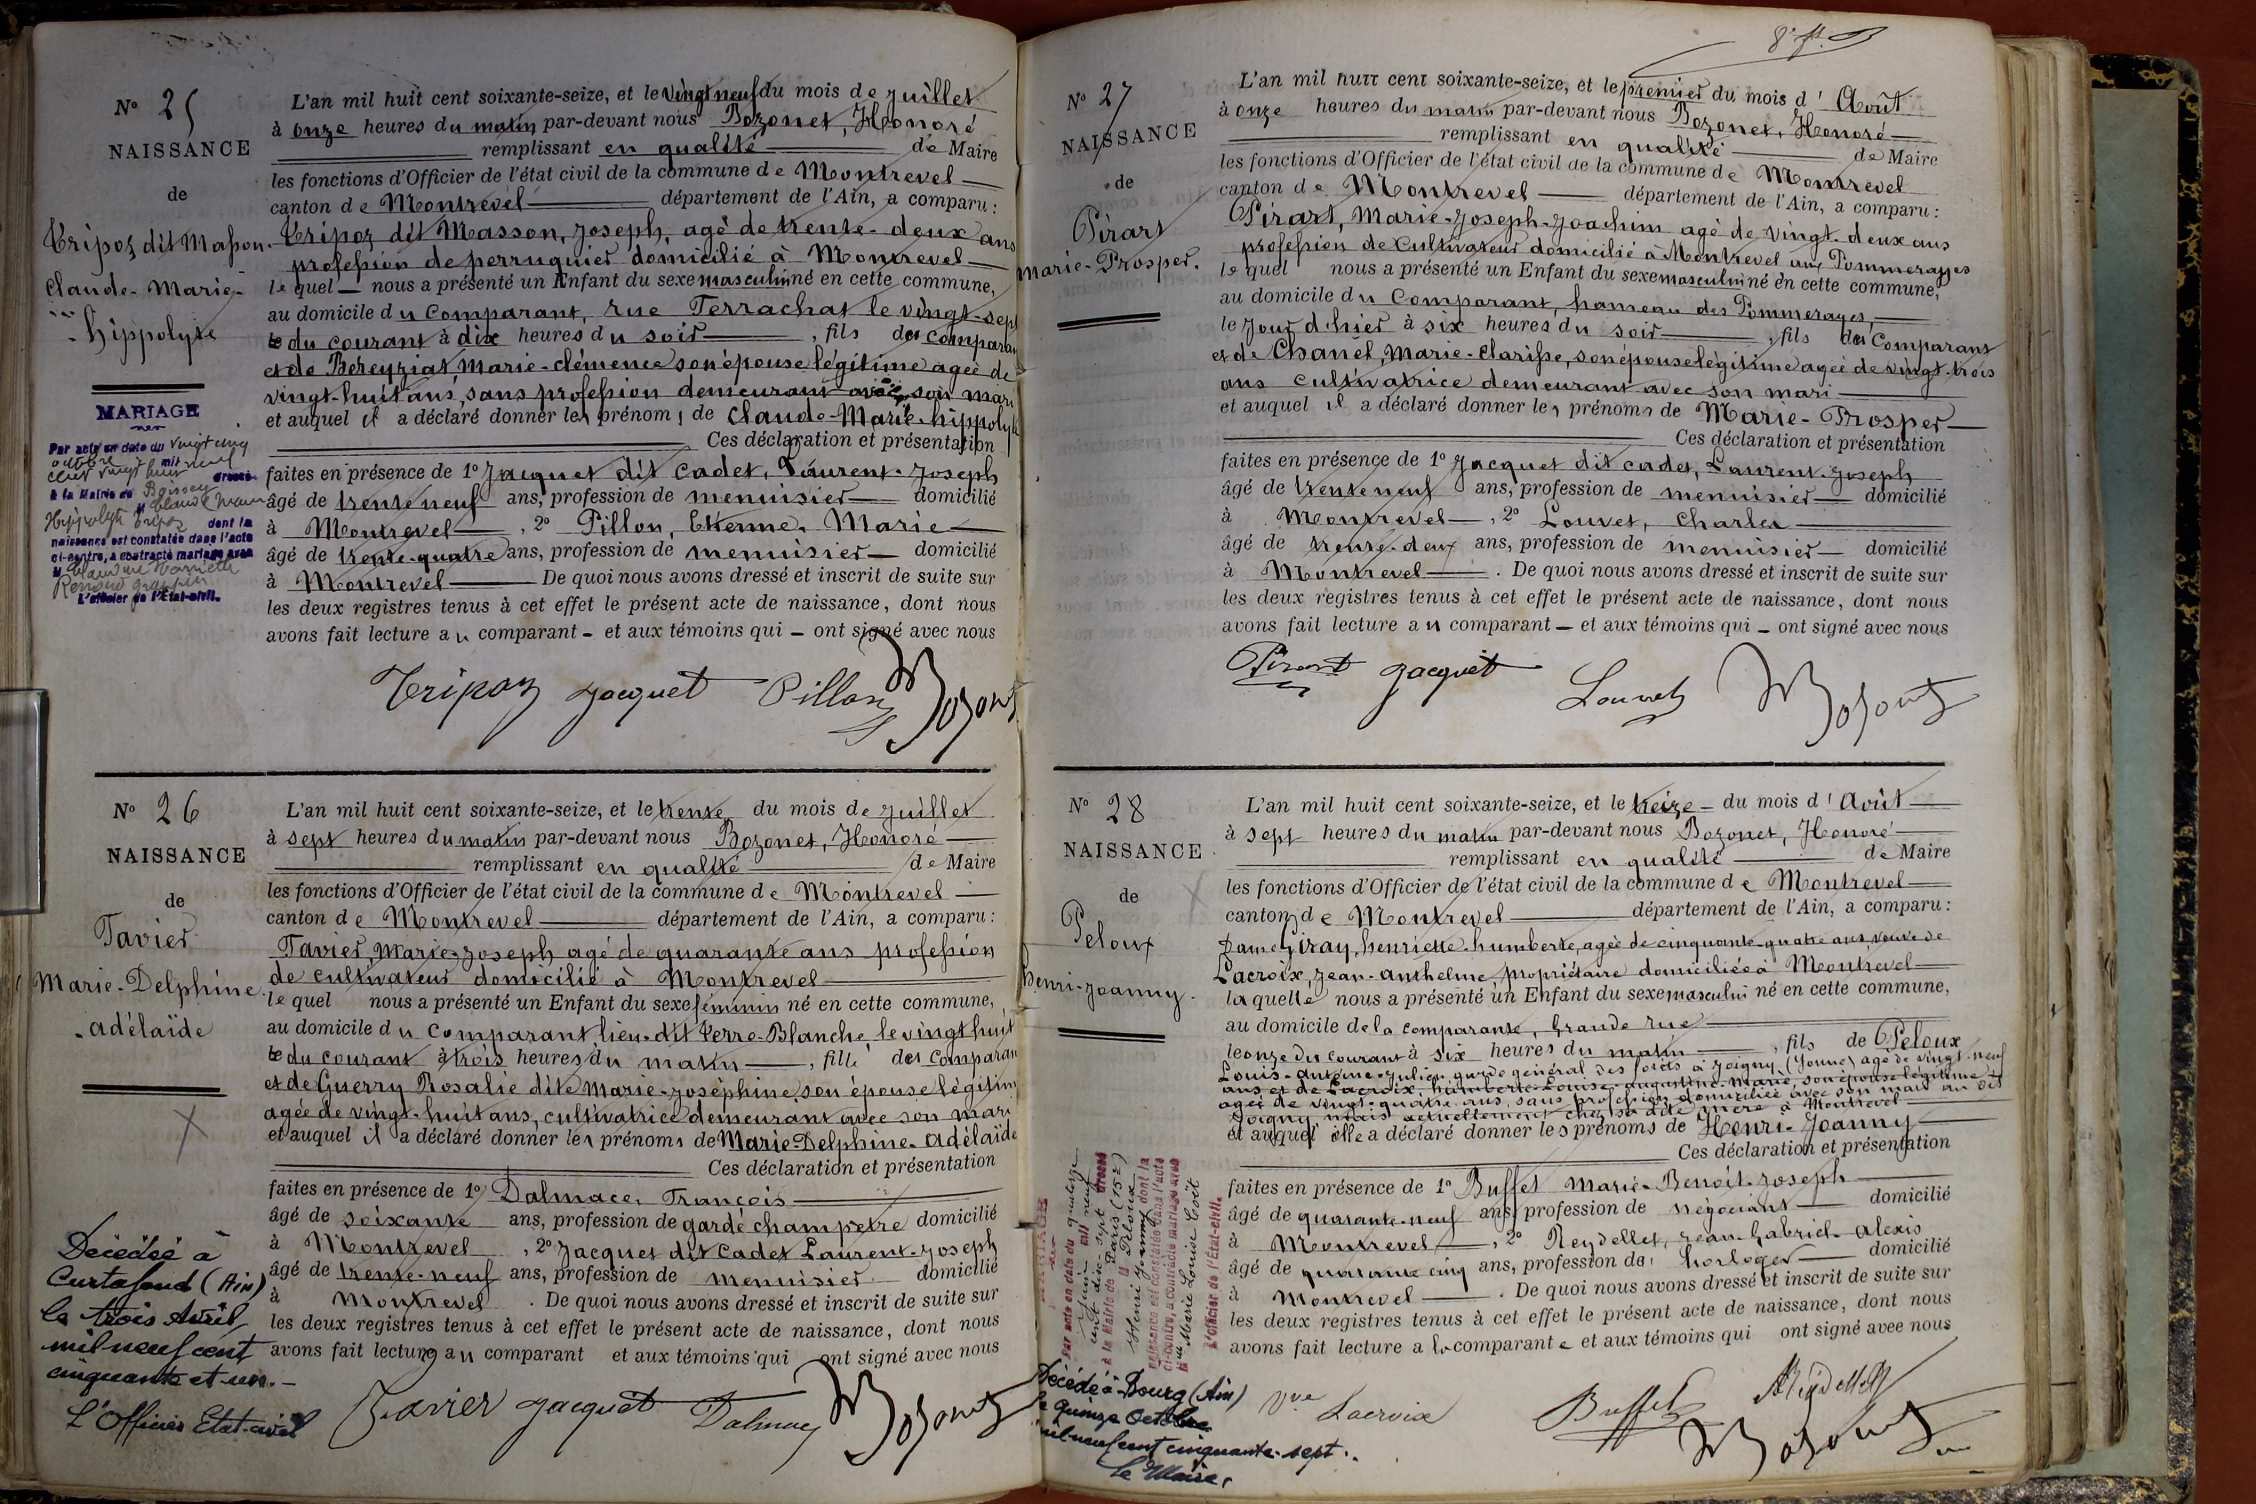 N° 25
NAISSANCE
de
Tripoz dit Masson
Claude-Marie-
hippolyte
MARIAGE
Par acte en date du vingt cinq
octobre mil
huit cent quatre vingt neuf dressé
à la Mairie de Boissey
M. Claude Marie
Hippolyte Tripoz dont la
naissance est constatée dans l'acte
ci-contre, a contracté mariage avec
L'officier de l'Etat-civil.
L'an mil huit cent soixante-seize, et le vingt neuf du mois de juillet
à onze heures du matin par-devant nous Bozonet, Honoré
remplissant en qualité de Maire
les fonctions d'Officier de l'état civil de la commune de Montrevel
canton de Montrevel département de l'Ain, a comparu :
Tripoz dit Masson, Joseph, agé de trente-deux ans
profession de perruquier domicilié à Montrevel
lequel nous a présenté un Enfant du sexe masculin né en cette commune,
au domicile du Comparant, rue Terrachat le vingt-sept
du courant à dix heures du soir, fils des comparant
et de Bereyziat Marie-clémence son épouse légitime agée de
vingt-huit ans, sans profession demeurant avec son mari
et auquel il a déclaré donner les prénoms de Claude-Marie-hippolyte
Ces déclaration et présentation
faites en présence de 1° Jacquet dit Cadet, Laurent-Joseph
âgé de trente neuf ans, profession de menuisier domicilié
à Montrevel, 2° Pillon, Etienne-Marie
âgé de trente-quatre ans, profession de menuisier domicilié
à Montrevel De quoi nous avons dressé et inscrit de suite sur
les deux registres tenus à cet effet le présent acte de naissance, dont nous
avons fait lecture au comparant et aux témoins qui ont signé avec nous
Tripoz Jacquet Pillon Bozonet
N° 26
NAISSANCE
de
Tavier
Marie-Delphine
-adélaïde
Décédée à
Curtafond (Ain)
le trois Avril
mil neuf cent
cinquante et un.-
L'Officier Etat-civil
L'an mil huit cent soixante-seize, et le trente du mois de juillet
à sept heures du matin par-devant nous Bozonet, Honoré
remplissant en qualité de Maire
les fonctions d'Officier de l'état civil de la commune de Montrevel
canton de Montrevel département de l'Ain, a comparu :
Tavier, Marie-Joseph agé de quarante ans profession
de cultivateur domicilié à Montrevel
lequel nous a présenté un Enfant du sexe féminin né en cette commune,
au domicile du Comparant, lieu-dit Terre-Blanche le vingt huit
du courant à trois heures du matin, fille des comparant
et de Guerry Rosalie dite Marie-joséphine, son épouse légitime
agée de vingt-huit ans, cultivatrice demeurant avec son mari
et auquel il a déclaré donner les prénoms de Marie-Delphine-adélaïde
Ces déclaration et présentation
faites en présence de 1° Dalmace, François
âgé de soixante ans, profession de garde champêtre domicilié
à Montrevel, 2° Jacquet dit Cadet Laurent-Joseph
âgé de trente-neuf ans, profession de menuisier domicilié
à Montrevel. De quoi nous avons dressé et inscrit de suite sur
les deux registres tenus à cet effet le présent acte de naissance, dont nous
avons fait lecture au comparant et aux témoins qui ont signé avec nous
Tavier Jacquet Dalmace Bozonet
N° 27
NAISSANCE
de
Pirart
Marie-Prosper.
L'an mil huit cent soixante-seize, et le premier du mois d'Août
à onze heures du matin par-devant nous Bozonet, Honoré
remplissant en qualité de Maire
les fonctions d'Officier de l'état civil de la commune de Montrevel
canton de Montrevel département de l'Ain, a comparu :
Pirart, Marie-Joseph-Joachim agé de vingt-deux ans
profession de Cultivateur domicilié à Montrevel aux Pommerayes
lequel nous a présenté un Enfant du sexe masculin né en cette commune,
au domicile du Comparant, hameau des Pommerayes,
le jour d'hier à six heures du soir, fils des Comparant
et de Chanel, Marie-Clarisse, son épouse légitime agée de vingt-trois
ans cultivatrice demeurant avec son mari
et auquel il a déclaré donner les prénoms de Marie-Prosper
Ces déclaration et présentation
faites en présence de 1° Jacquet dit cadet, Laurent-Joseph
âgé de trente neuf ans, profession de menuisier domicilié
à Montrevel, 2° Louvet, Charles
âgé de trente-deux ans, profession de menuisier domicilié
à Montrevel. De quoi nous avons dressé et inscrit de suite sur
les deux registres tenus à cet effet le présent acte de naissance, dont nous
avons fait lecture au comparant et aux témoins qui ont signé avec nous
Pirart Jacquet Louvet Bozonet
N° 28
NAISSANCE
de
Peloux
henri-joanny.
MARIAGE
Par acte en date du quatorze
juin mil neuf
cent dix-sept dressé
à la Mairie de Paris (15e)
M Peloux
Henri Joanny dont la
naissance est constatée dans l'acte
ci-contre, a contracté mariage avec
Marie Louise
L'Officier de l'Etat-civil.
Décédé à Bourg (Ain)
le quinze Octobre
mil neuf cent cinquante-sept.
Le Maire,
L'an mil huit cent soixante-seize, et le treize du mois d'Août
à sept heures du matin par-devant nous Bozonet, Honoré
remplissant en qualité de Maire
les fonctions d'Officier de l'état civil de la commune de Montrevel
canton de Montrevel département de l'Ain, a comparu :
Dame Giray, henriette-humberte, agée de cinquante-quatre ans veuve de
Lacroix, Jean-anthelme, propriétaire domiciliée à Montrevel
laquelle nous a présenté un Enfant du sexe masculin né en cette commune,
au domicile de la comparante, Grande rue
le onze du courant à six heures du matin, fils de Peloux
Louis-antoine-Julien garde général des forêts à Joigny (Yonne) agé de vingt-neuf
ans et de Lacroix humberte-Louise-augustine-Marie, son épouse légitime
agée de vingt-quatre ans, sans profession domiciliée avec son mari au dit
Joigny, mais actuellement chez sa dite mère à Montrevel
et auquel elle a déclaré donner les prénoms de Henri-Joanny
Ces déclaration et présentation
faites en présence de 1° Buffet Marie-Benoit-Joseph
âgé de quarante-neuf ans, profession de négociant domicilié
à Montrevel, 2° Reydellet, Jean-Gabriel-alexis
âgé de quarante cinq ans, profession de horloger domicilié
à Montrevel. De quoi nous avons dressé et inscrit de suite sur
les deux registres tenus à cet effet le présent acte de naissance, dont nous
avons fait lecture à la comparante et aux témoins qui ont signé avec nous
Vve Lacroix Buffet Reydellet Bozonet